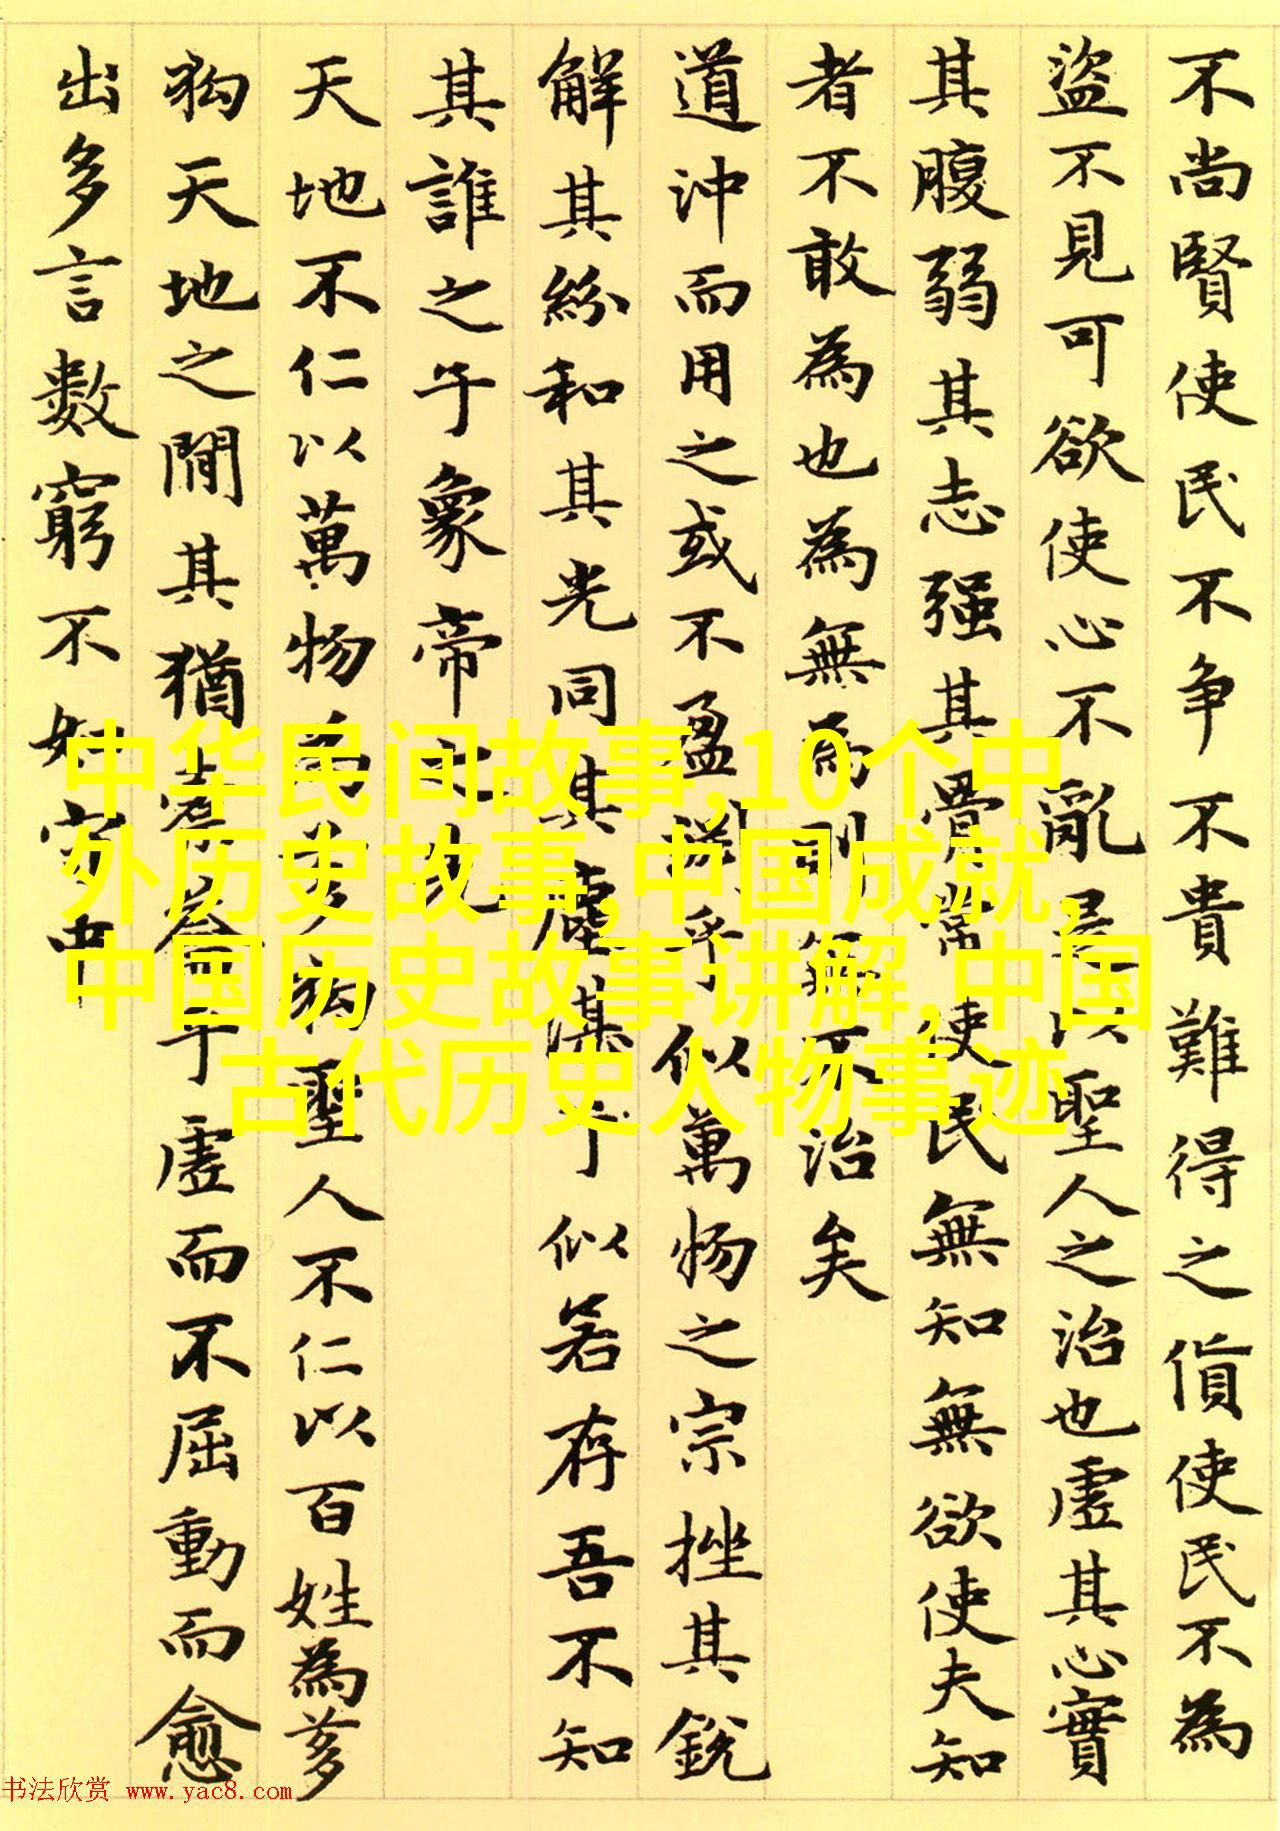 不尚賢使民不争不貴難得之貨使民不為
盜不見可欲使心不亂是以聖人之治也虛其心實
其腹弱其志强其骨常使民無知無欲使夫知
者不敢為也為無為則無不治矣
道沖而用之或不盈淵乎似萬物之宗挫其銳
解其紛和其光同其塵湛乎似若存吾不知
其誰之子象帝之先
天地不仁以萬物為芻狗聖人不仁以百姓為芻
狗天地之間其猶橐龠乎虛而不屈動而愈
出多言數窮不如守中
中华民间故事,10个中
外历史故事,中国成就,
中国历史故事讲解,中国
古代历史人物事迹
书法欣赏 www.yac8.com